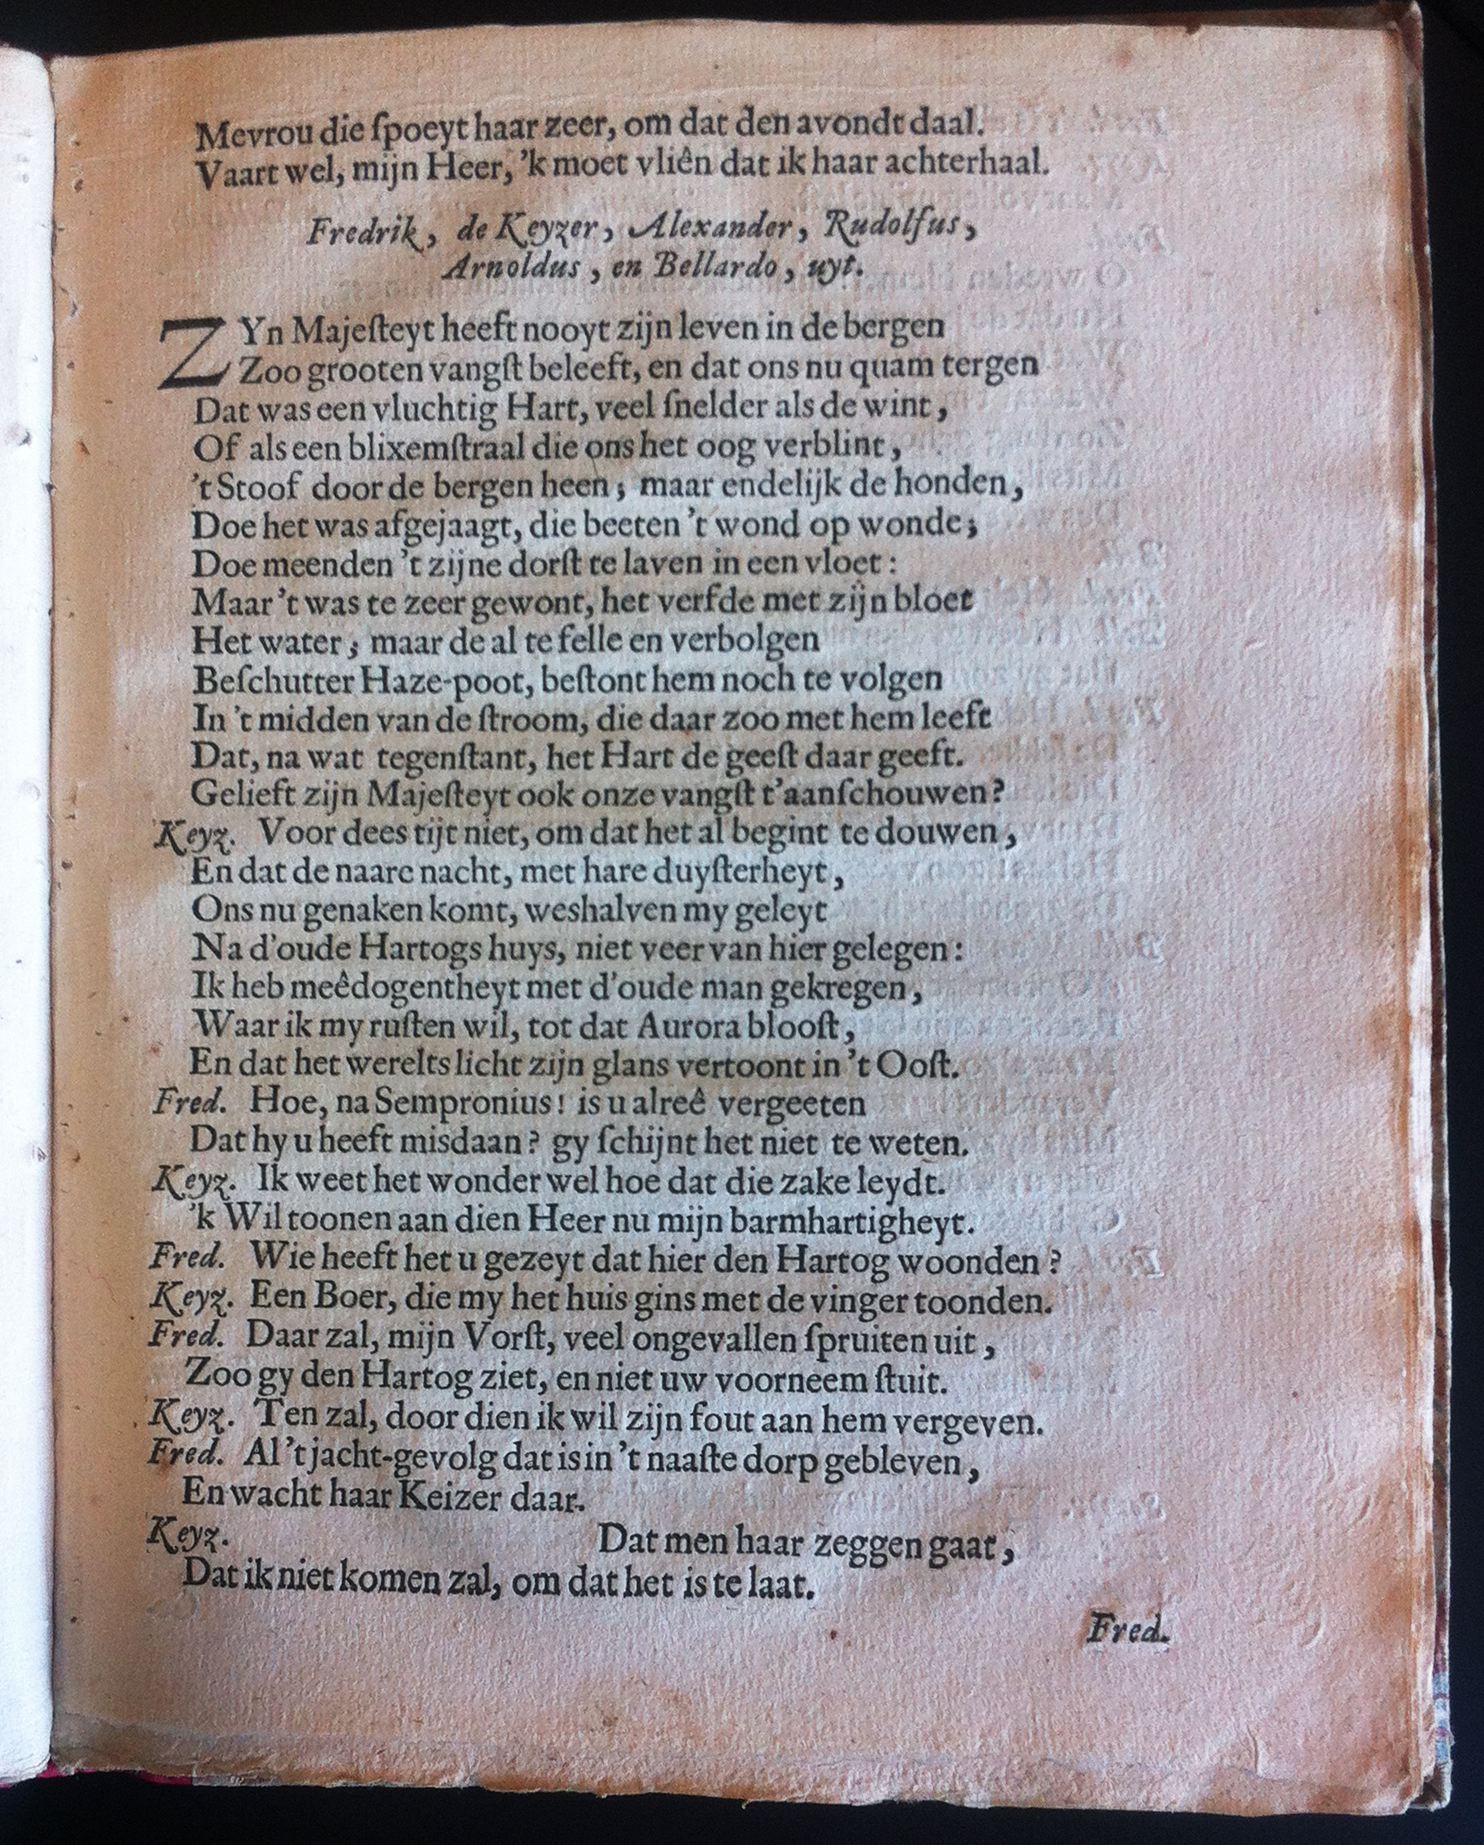 Mevrou die ſpoeyt haar zeer, om dat den avondt daal.
Vaart wel, mijn Heer, 'k moet vliên dat ik haar achterhaal.
Fredrik, de Keyzer, Alexander, Rudolfus,
Arnoldus, en Bellardo, uyt.
ZYn Majeſteyt heeft nooyt zijn leven in de bergen
Zoo grooten vangſt beleeft, en dat ons nu quam tergen
Dat was een vluchtig Hart, veel ſnelder als de wint,
Of als een blixemſtraal die ons het oog verblint,
't Stoof door de bergen heen; maar endelijk de honden,
Doe het was afgejaagt, die beeten 't wond op wonde;
Doe meenden 't zijne dorſt te laven in een vloet:
Maar 't was te zeer gewont, het verfde met zijn bloet
Het water; maar de al te felle en verbolgen
Beſchutter Haze-poot, beſtont hem noch te volgen
In 't midden van de ſtroom, die daar zoo met hem leeft
Dat, na wat tegenſtant, het Hart de geeſt daar geeft.
Gelieft zijn Majeſteyt ook onze vangſt t'aanſchouwen?
Keyz. Voor dees tijt niet, om dat het al begint te douwen,
En dat de naare nacht, met hare duyſterheyt,
Ons nu genaken komt, weshalven my geleyt
Na d'oude Hartogs huys, niet veer van hier gelegen:
Ik heb meêdogentheyt met d'oude man gekregen,
Waar ik my ruſten wil, tot dat Aurora blooſt,
En dat het werelts licht zijn glans vertoont in 't Ooſt.
Fred. Hoe, na Sempronius! is u alreê vergeeten
Dat hy u heeft misdaan? gy ſchijnt het niet te weten.
Keyz. Ik weet het wonder wel hoe dat die zake leydt.
'k Wil toonen aan dien Heer nu mijn barmhartigheyt.
Fred. Wie heeft het u gezeyt dat hier den Hartog woonden?
Keyz. Een Boer, die my het huis gins met de vinger toonden.
Fred. Daar zal, mijn Vorſt, veel ongevallen ſpruiten uit,
Zoo gy den Hartog ziet, en niet uw voorneem ſtuit.
Keyz. Ten zal, door dien ik wil zijn fout aan hem vergeven.
Fred. Al 't jacht-gevolg dat is in 't naaſte dorp gebleven,
En wacht haar Keizer daar.
Keyz. Dat men haar zeggen gaat,
Dat ik niet komen zal, om dat het is te laat.
Fred.